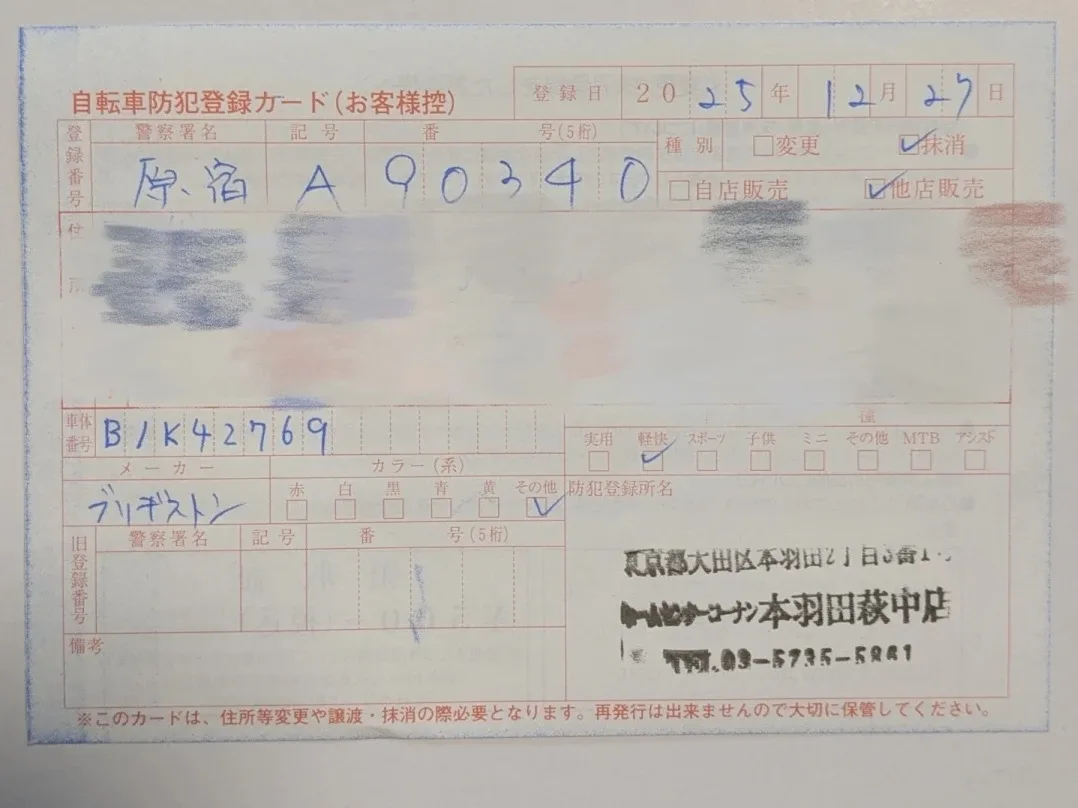 自転車防犯登録カード(お客様控)
登録日 2025年12月27日
登録番号 警察署名 記号 番号(5桁)
原宿 A 90340
種別 □変更 ☑抹消
□自店販売 ☑他店販売
住
所
車体番号 B1K42769
メーカー カラー(系)
ブリヂストン
赤 白 黒 青 黄 その他
実用 軽快 スポーツ 子供 ミニ その他 MTB アシスト
防犯登録所名
東京都大田区本羽田2丁目3番1
ホームセンターコーナン本羽田萩中店
TEL.03-5735-5861
旧登録番号 警察署名 記号 番号(5桁)
備考
※このカードは、住所等変更や譲渡・抹消の際必要となります。再発行は出来ませんので大切に保管してください。